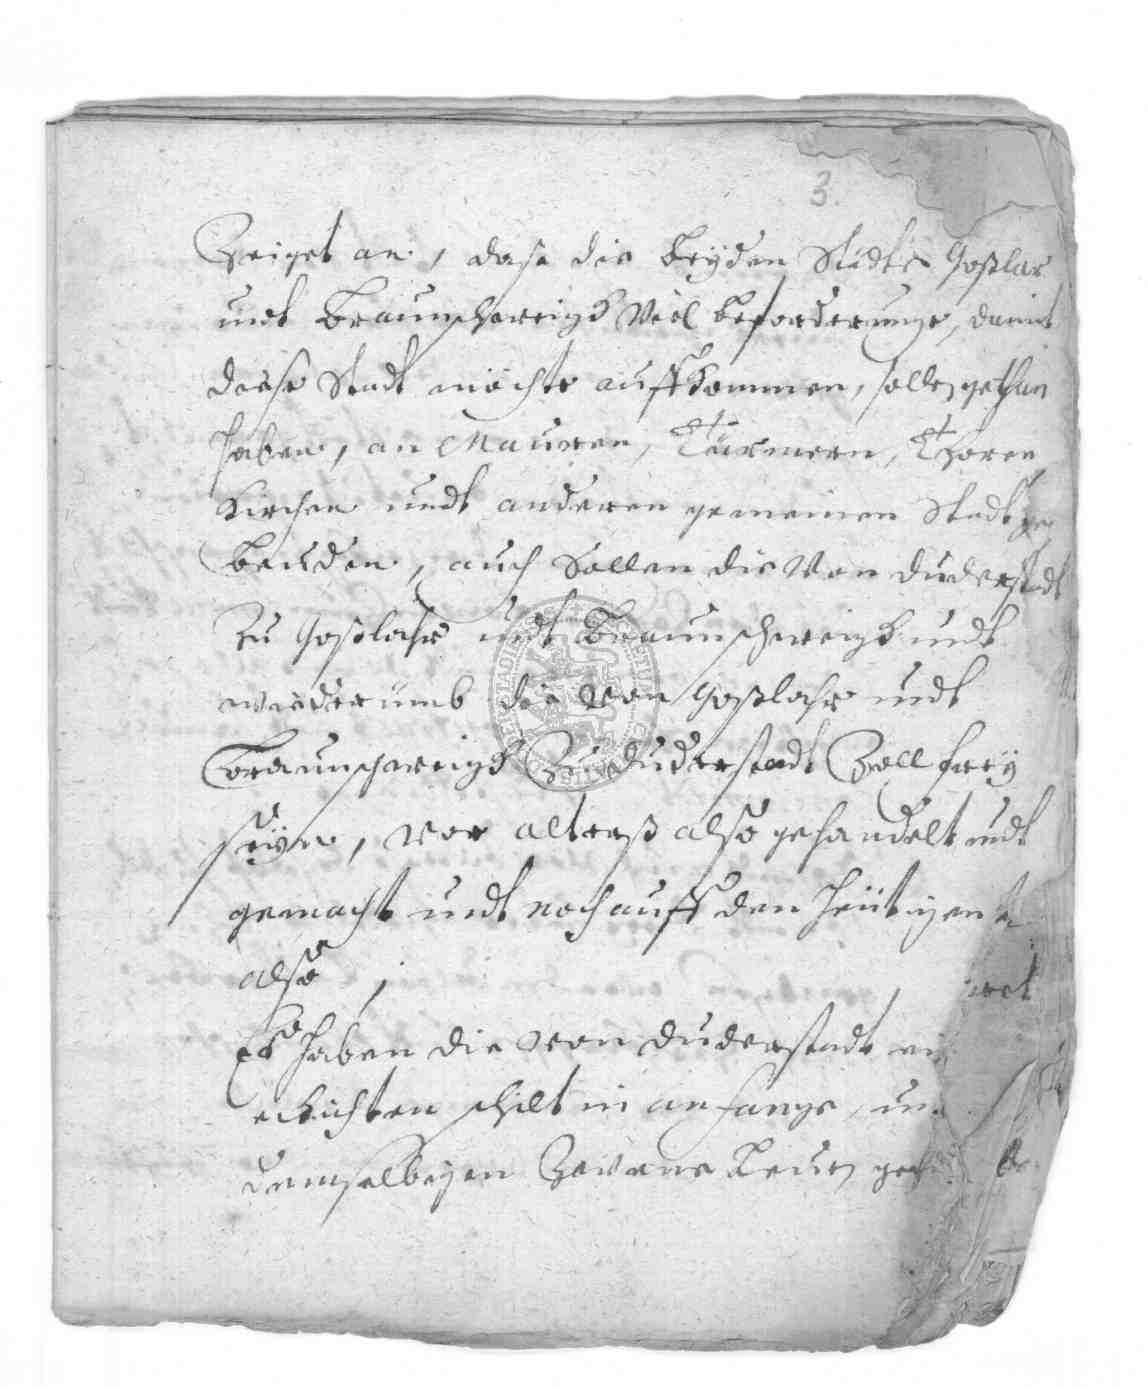 3.
Zeiget an, dass die beyden Städte Goßlar
undt Braunschweigk Viel beforderunge, damit
diese Stadt möchte auffkommen, sollen gethan
haben, an Mauren, Türmern, Thoren
Kirchen undt anderen gemeinen Stadt ge
beuden, auch Sollen die Von Duderstadt
Zu Goßlahr undt Braunschweigk undt
wiederumb die Von Goßlahr undt
Braunschweigk Zu Duderstadt Zoll frey
seyn, Vor alterß also gehandelt undt
gemacht undt noch auff den heütigen
also
Es haben die Von Duderstadt
schilt in anfange
demselbigen Zwene Leuen